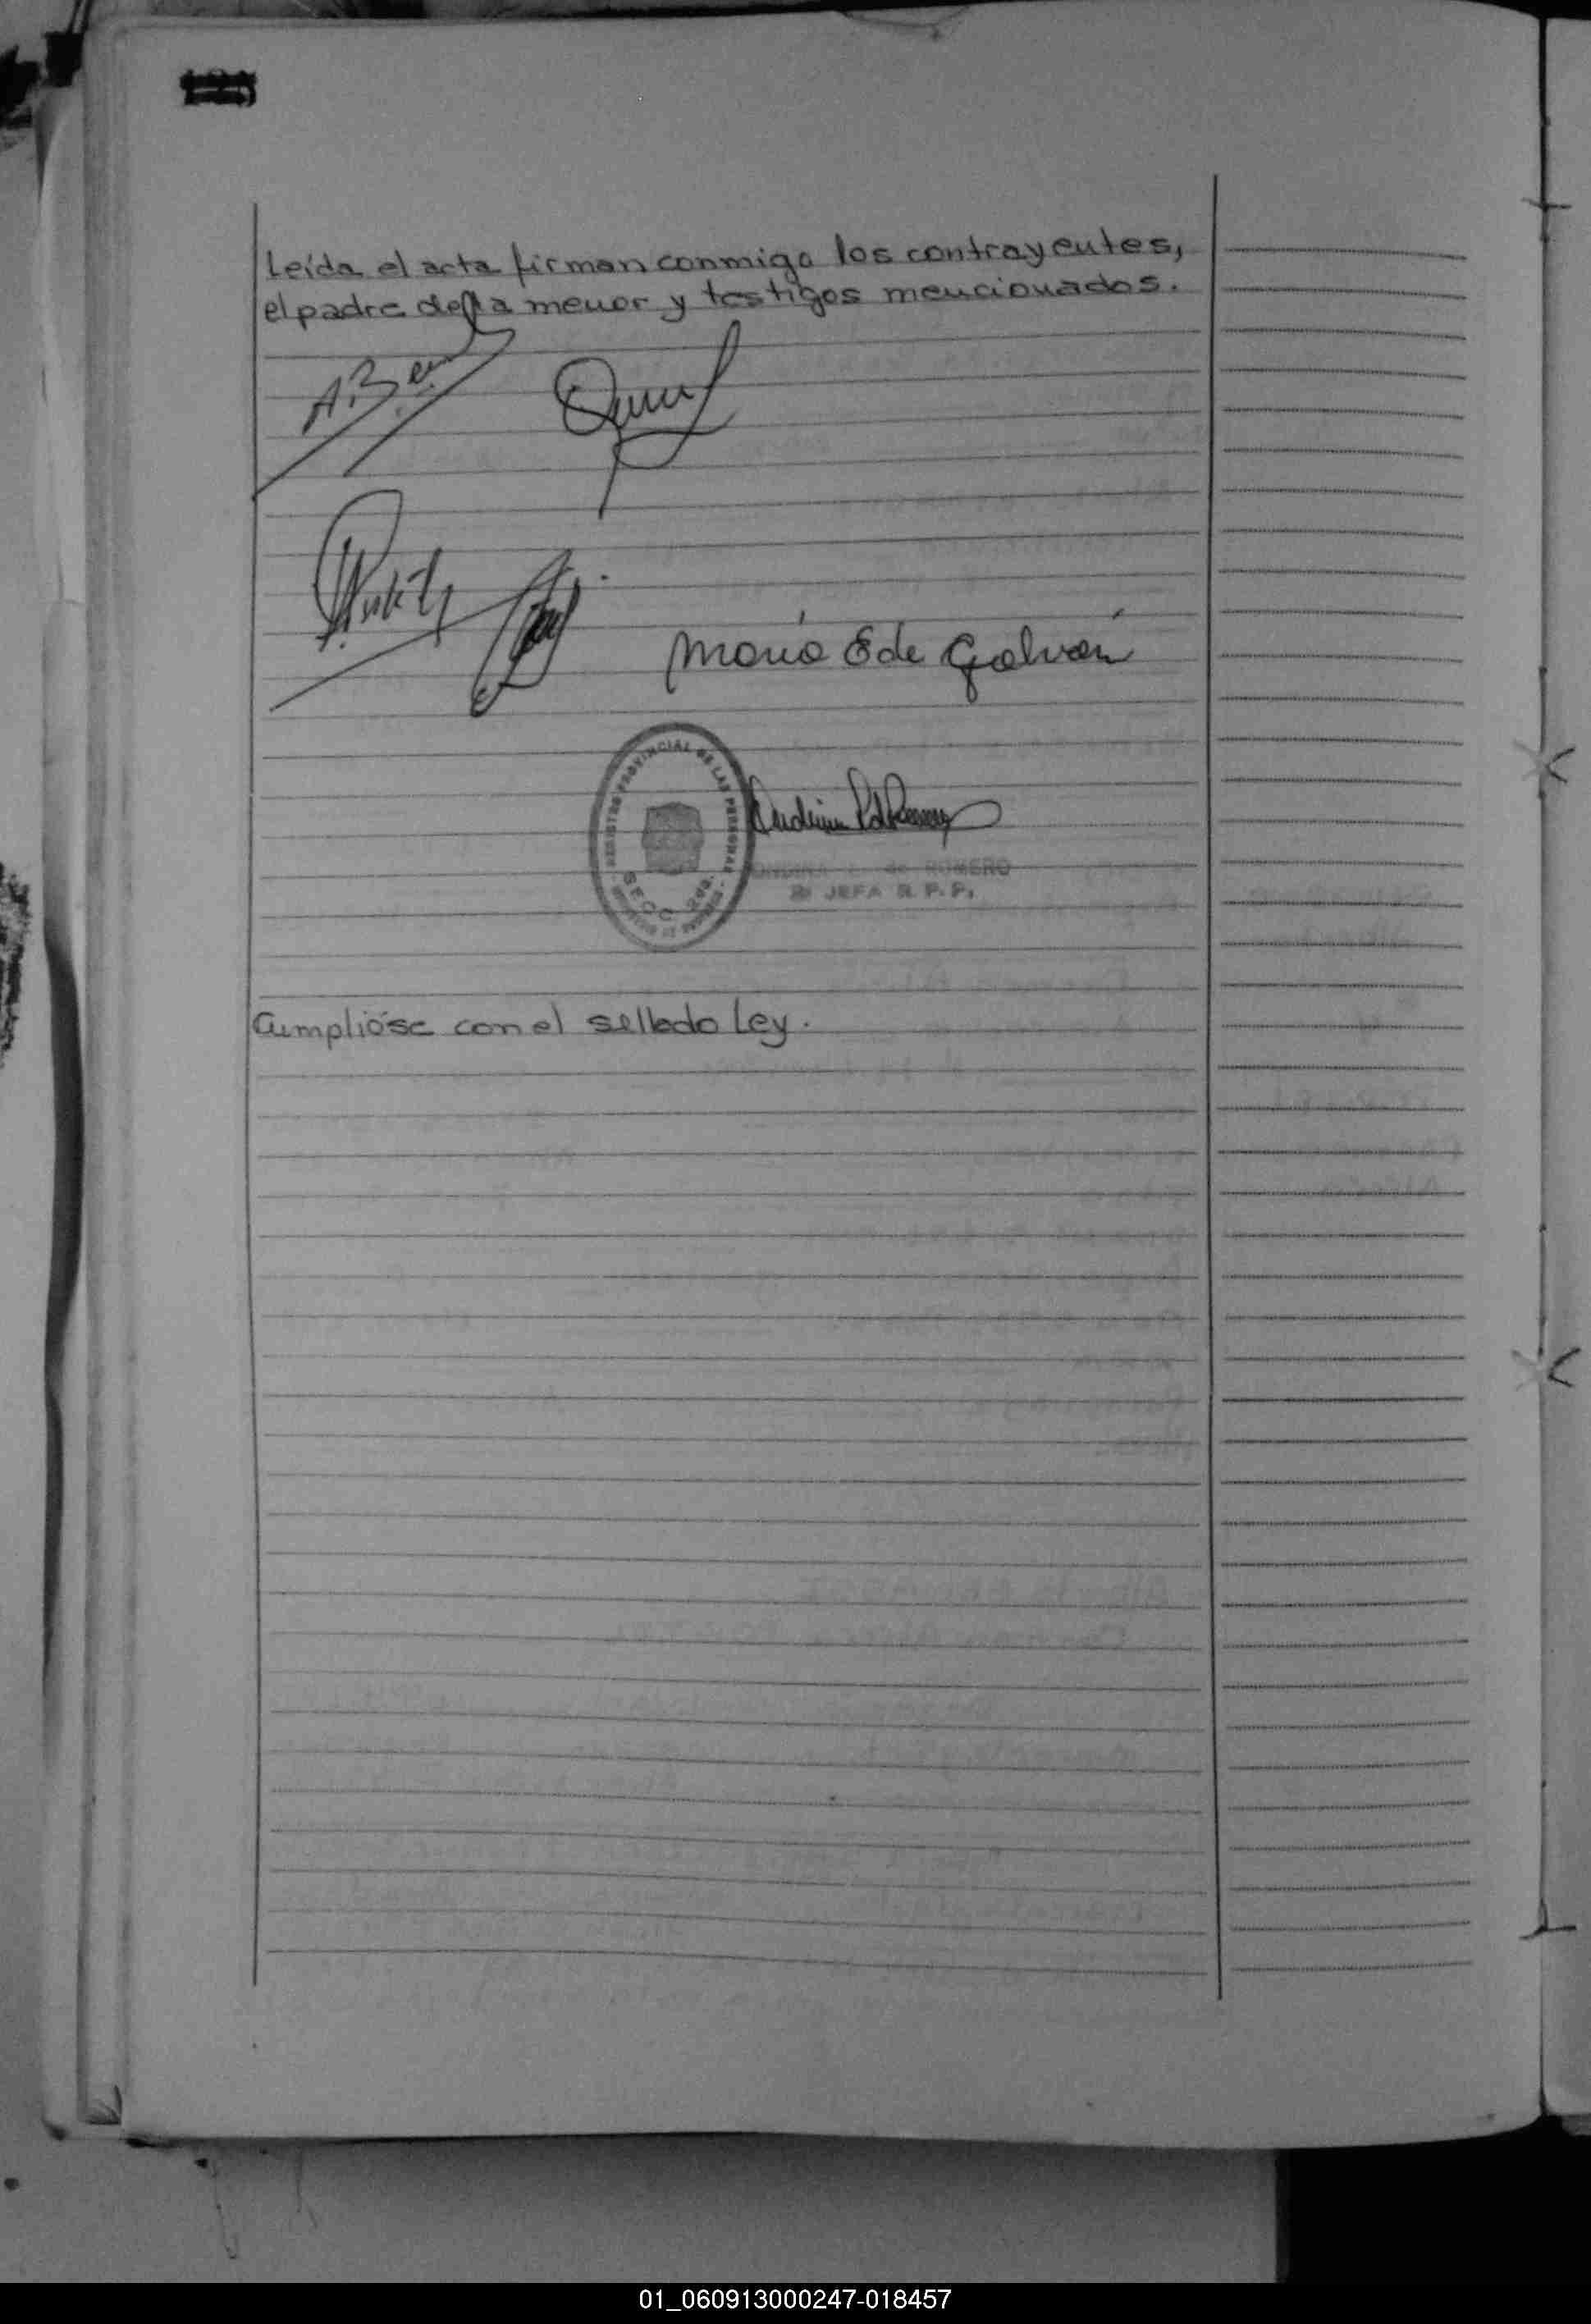 Leída el acta firman conmigo los contrayentes,
el padre de la menor y testigos mencionados.
A. Ben
María E de Galván
REGISTRO PROVINCIAL DE LAS PERSONAS
SECC. 2da.
ONDINA de ROMERO
JEFA R. P. P.
Cumplióse con el sellado Ley.
01_060913000247-018457